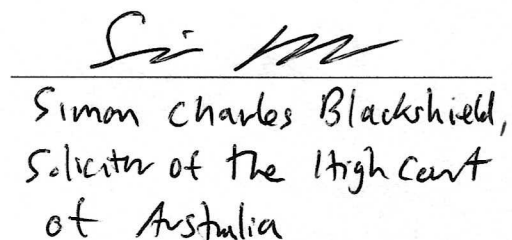 Simon Charles Blackshield,
Solicitor of the High Court
of Australia